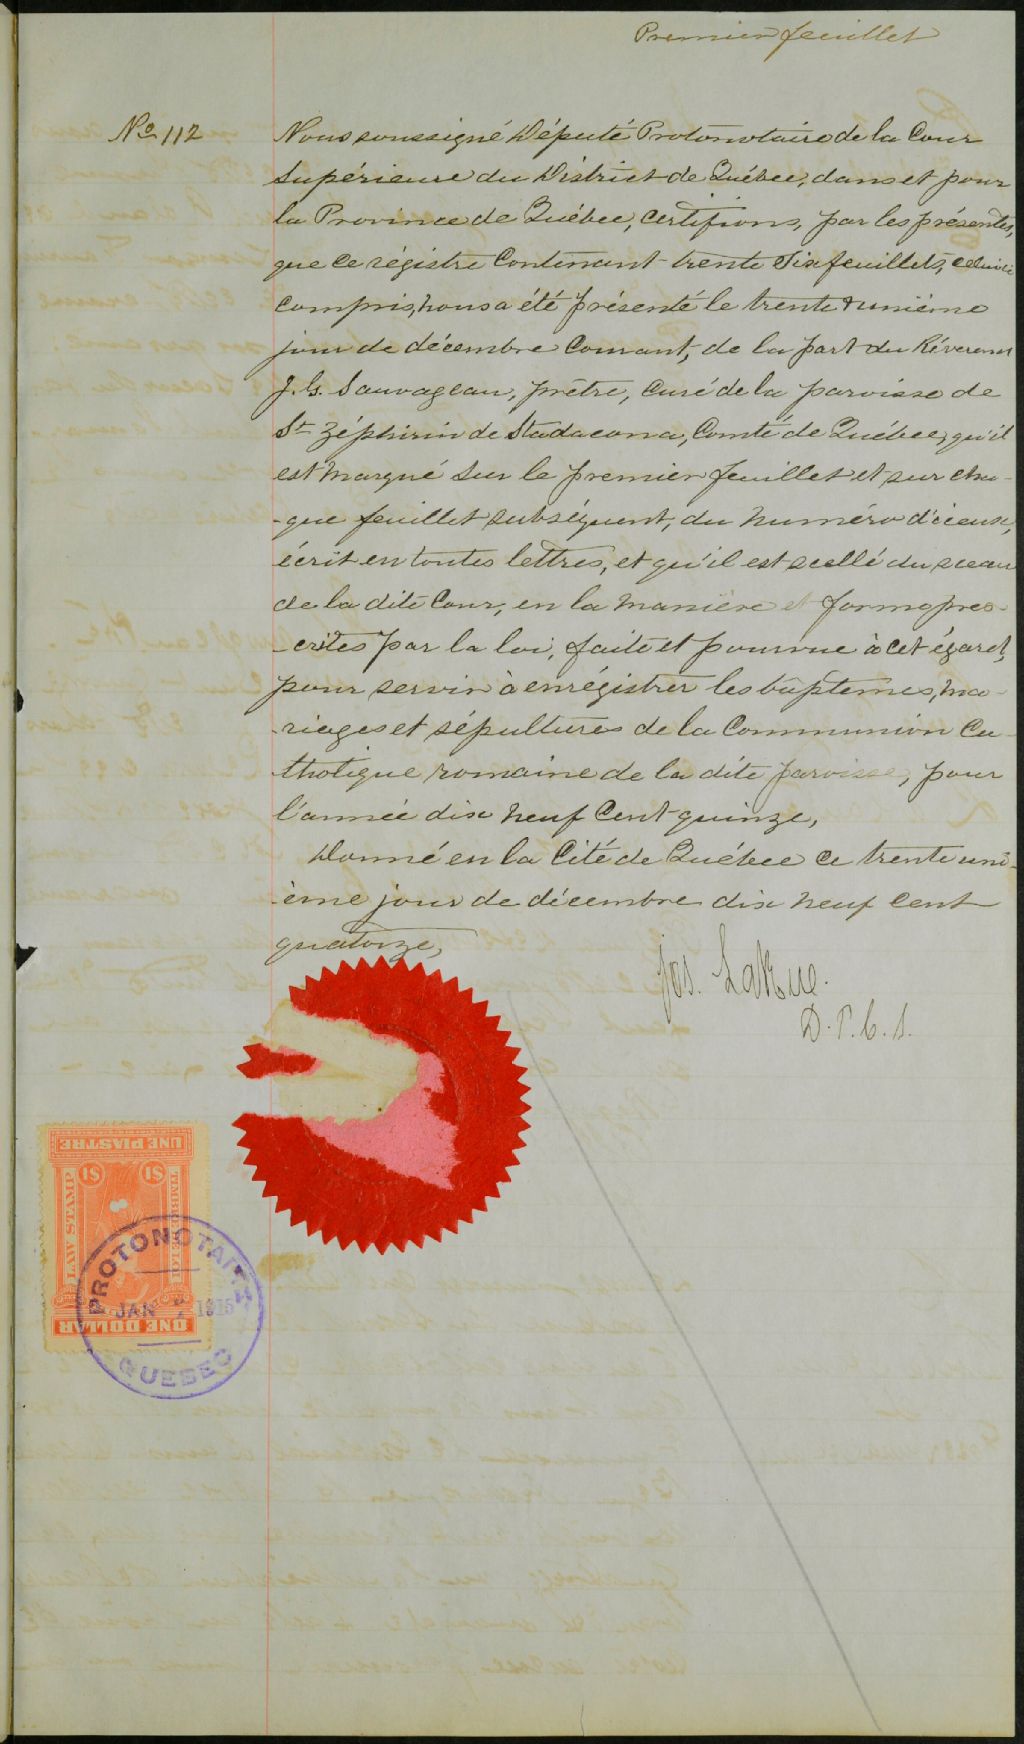 Premier feuillet
No 112
Nous soussigné Député Protonotaire de la Cour
Supérieure du District de Québec, dans et pour
la Province de Québec, certifions, par les présentes,
que ce régistre contenant trente six feuillets, celui ci
compris, nous a été présenté le trente & unième
jour de décembre courant, de la part du Réverend
J. G. Sauvageau, prêtre, curé de la paroisse de
St Zéphirin de Stadacona, Comté de Québec, qu'il
est marqué sur le premier feuillet et sur cha-
-que feuillet subséquent, du numéro d'iceux,
écrit en toutes lettres, et qu'il est scellé du sceau
de la dite Cour, en la manière et forme pres-
-crites par la loi, faite et pourvue à cet égard,
pour servir à enrégistrer les baptemes, ma-
-riages et sépultures de la Communion Ca-
tholique romaine de la dite paroisse, pour
l'année dix neuf cent quinze,
Donné en la Cité de Québec ce trente uni-
-ème jour de décembre dix neuf cent
quatorze,
Jos. LaRue.
D. P. C. S.
UNE PIASTRE
$1 $1
LAW STAMP
ONE DOLLAR
PROTONOTAIRE
JAN 1915
QUEBEC